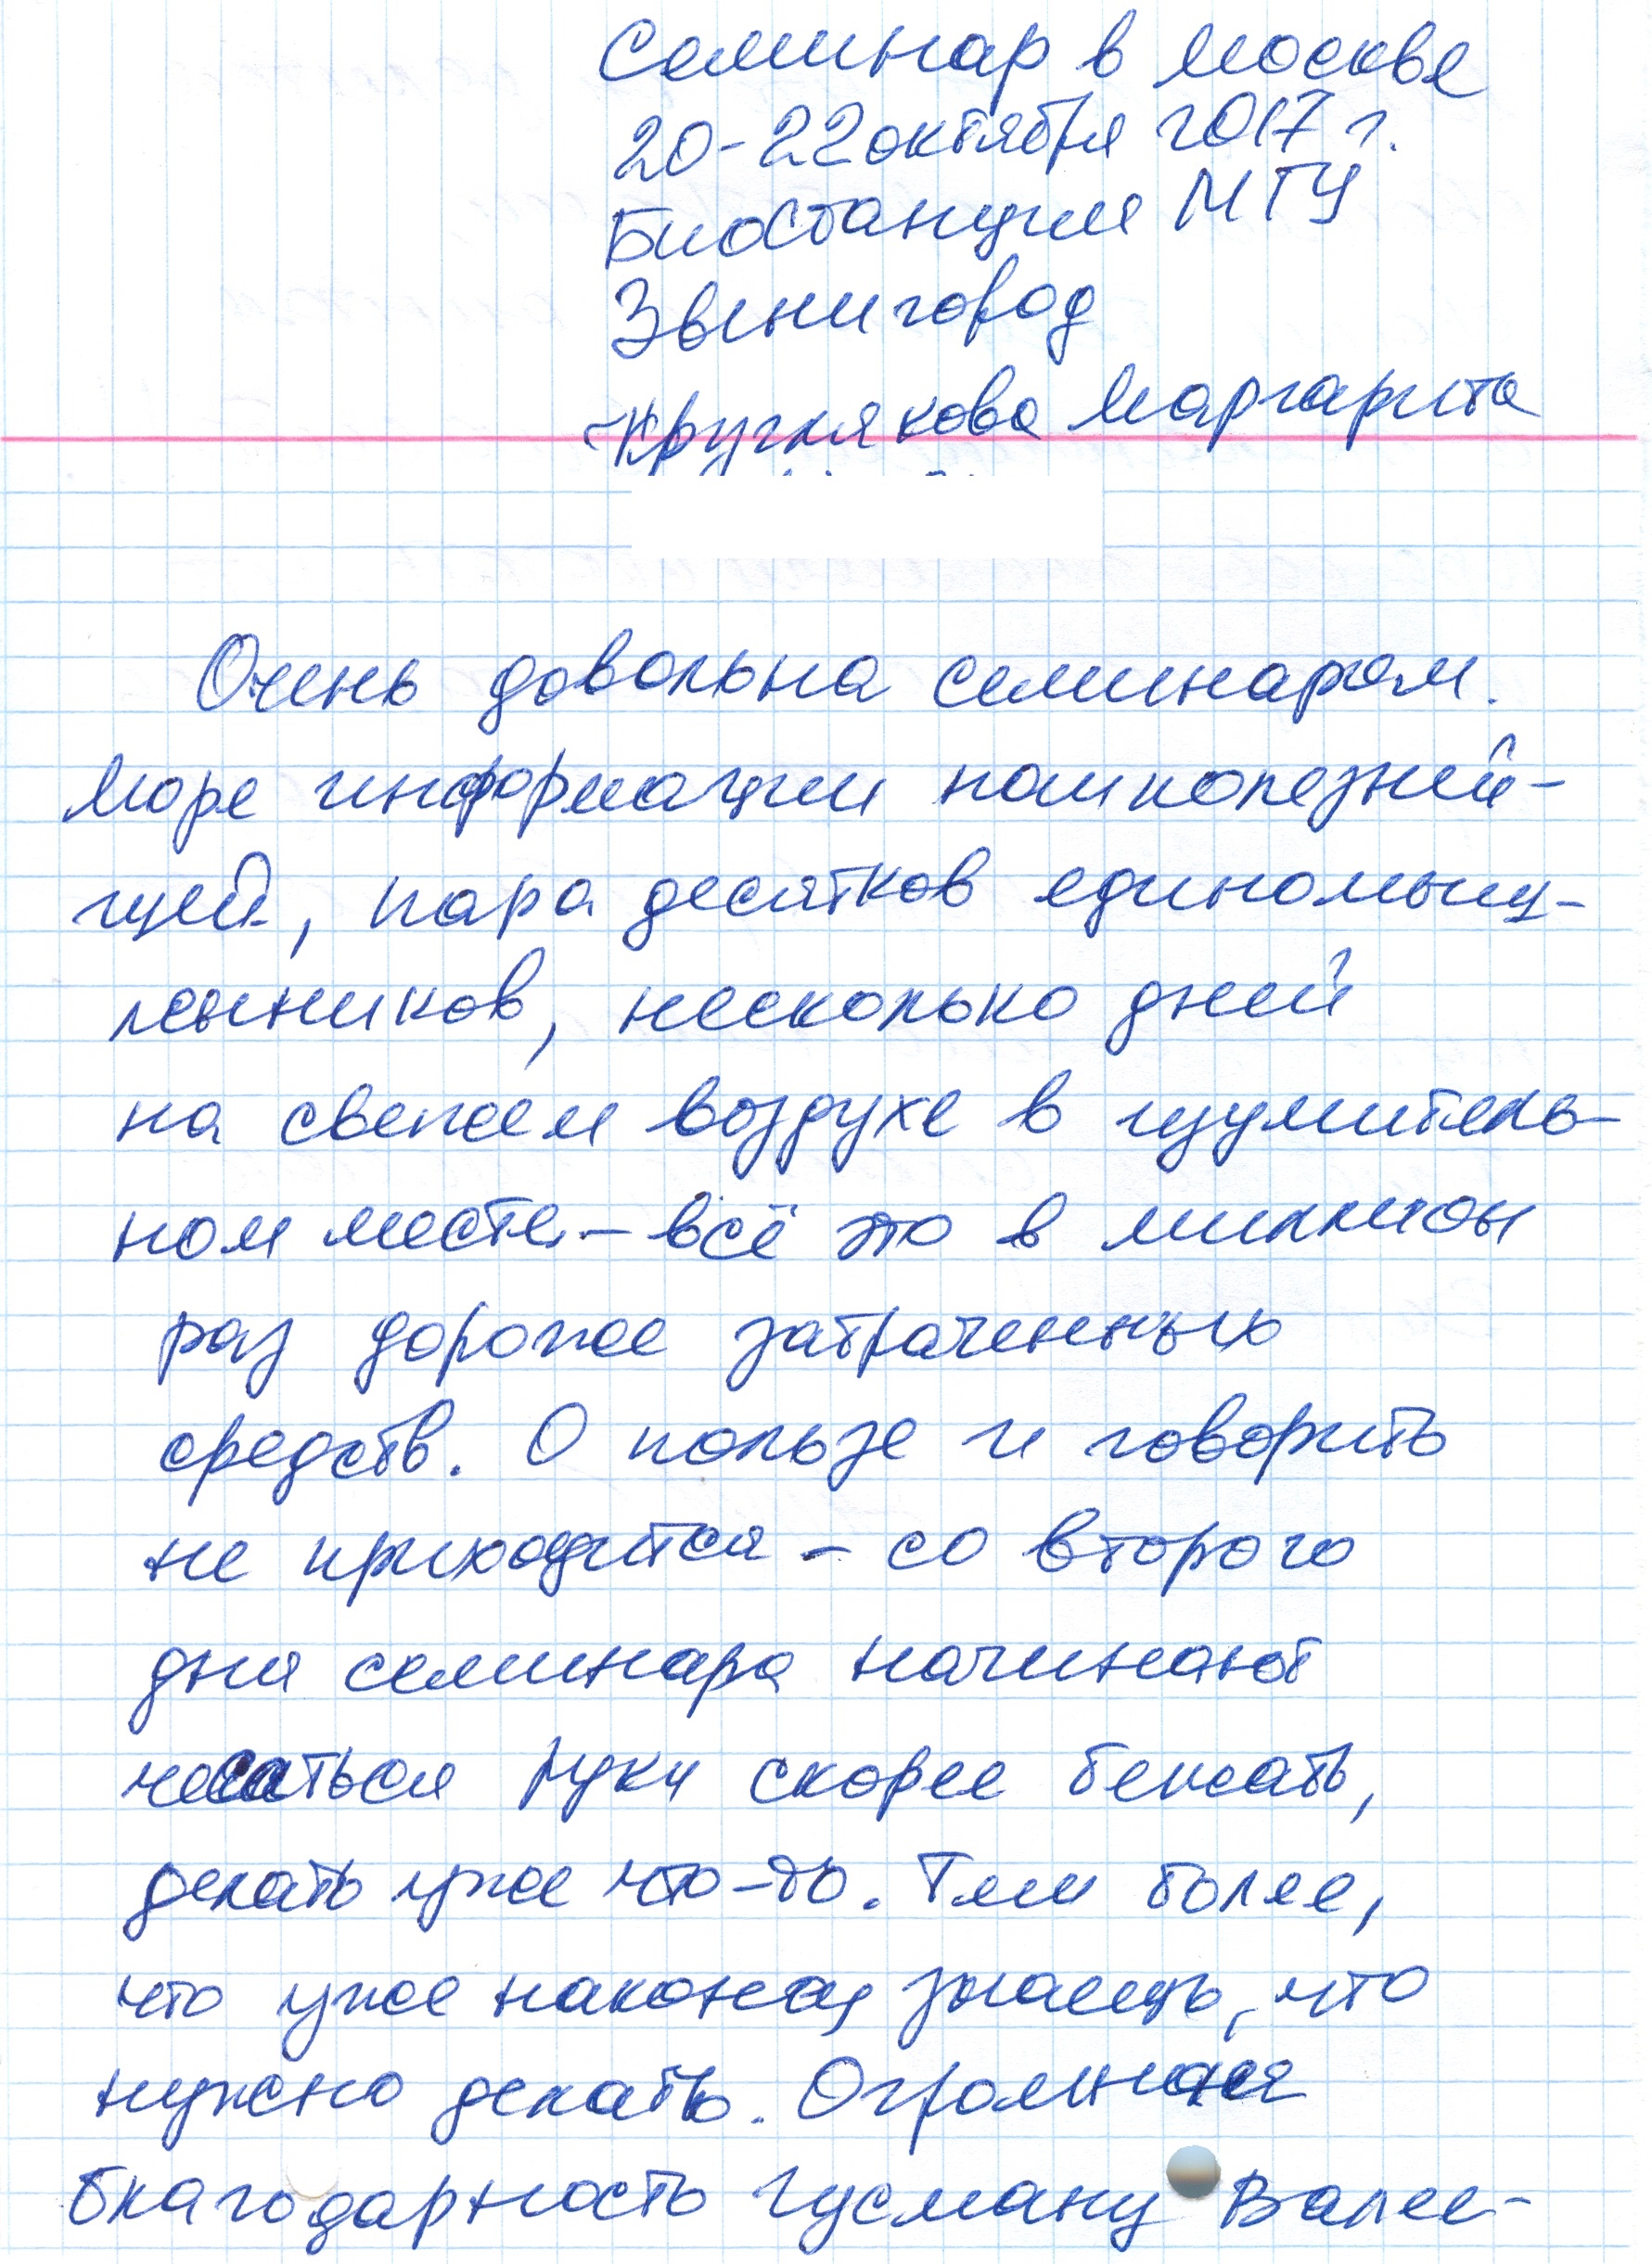 Семинар в Москве
20-22 октября 2017 г.
Биостанция МГУ
Звенигород
Круглякова Маргарита
Очень довольна семинаром.
Море информации наиполезней-
шей, пара десятков единомыш-
ленников, несколько дней
на свежем воздухе в изумитель-
ном месте – всё это в миллион
раз дороже затраченных
средств. О пользе и говорить
не приходится – со второго
дня семинара начинают
чесаться руки скорее бежать,
делать уже что-то. Тем более,
что уже наконец знаешь, что
нужно делать. Огромная
благодарность Гусману Валее-